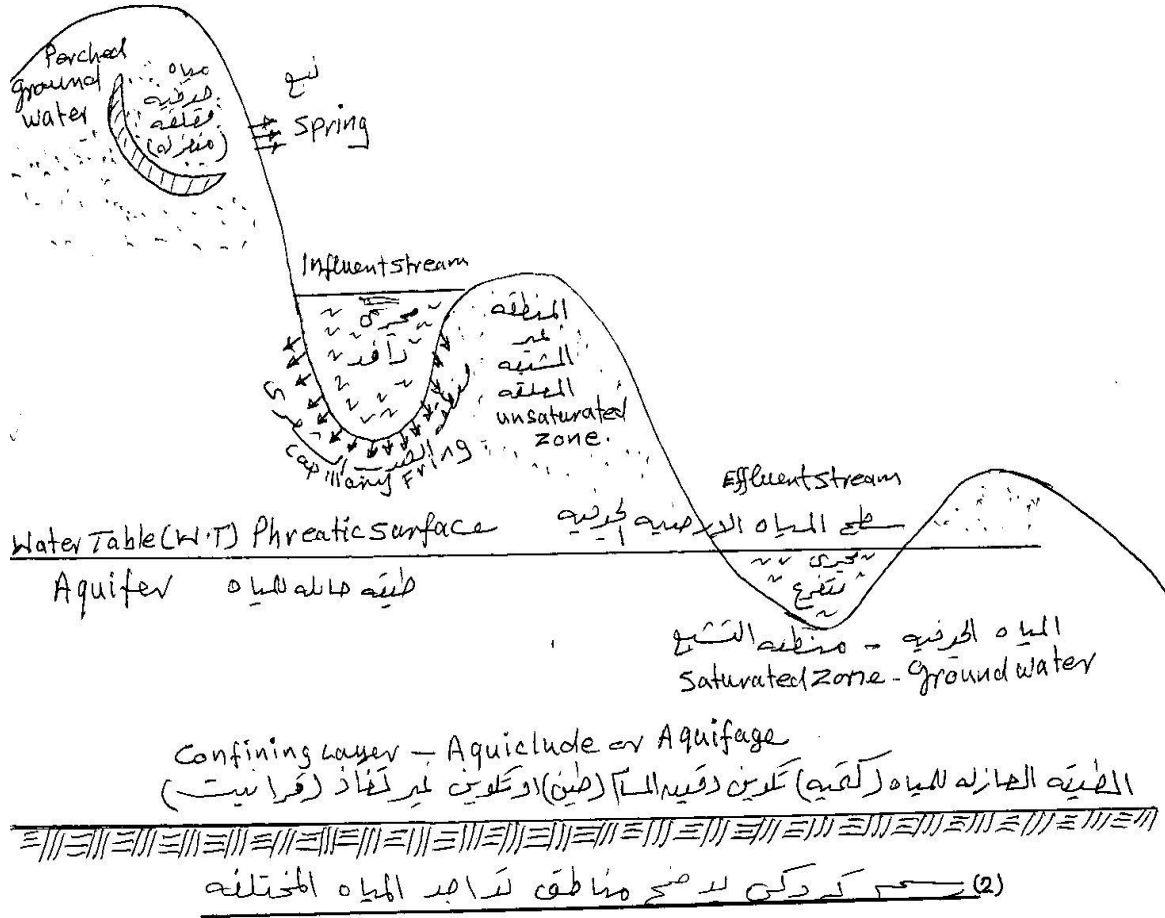 Perched
ground
water
مياه
جوفيه
معلقه
(منعزله)
نبع
Spring
Influent stream
مجرى
رافد
المنطقه
غير
المشبعه
المعلقه
unsaturated
zone.
capillary Fring
Effluent stream
سطح المياه الارضيه الجوفيه
Water Table (W.T) Phreatic surface
مجرى
متفرع
Aquifer طبقه حامله للمياه
المياه الجوفيه - منطقه التشبع
Saturated zone - Ground water
Confining Layer - Aquiclude or Aquifage
الطبقه العازله للمياه (كتميه) تكوين دقيق المسام (طين) او تكوين غير نفاذ (قرانيت)
(2) رسم كروكى يوضح مناطق تواجد المياه المختلفه